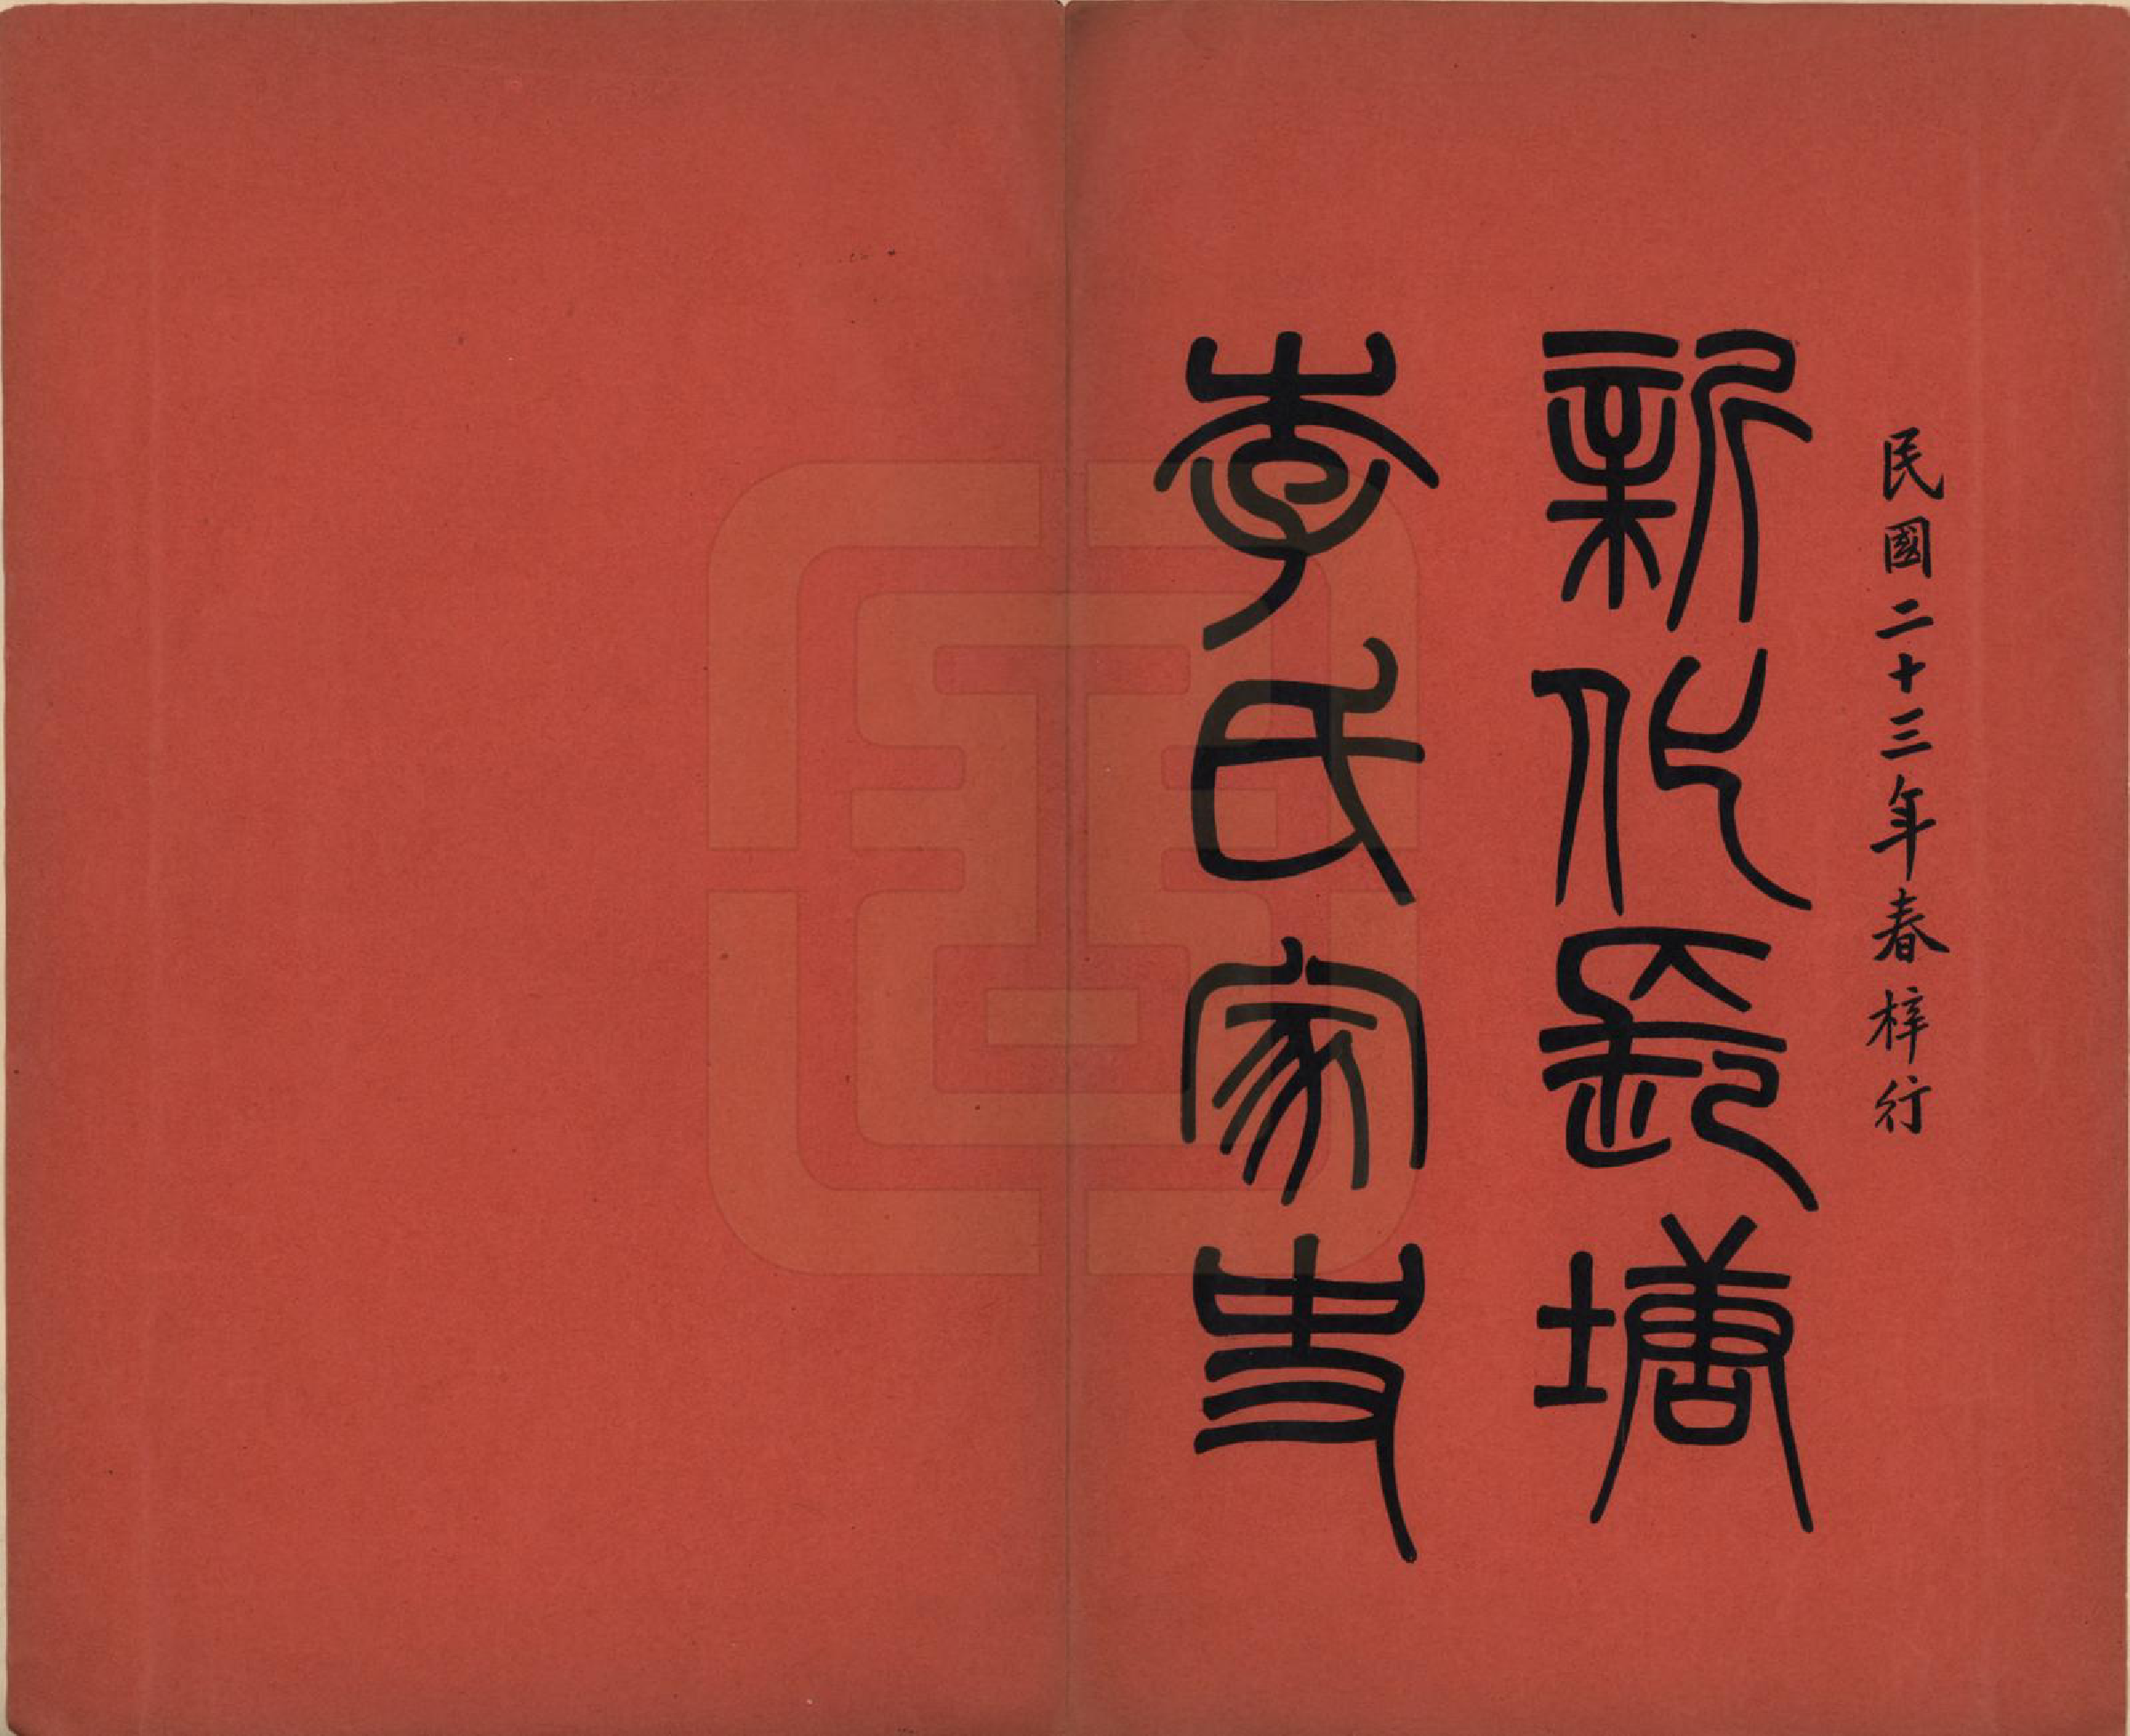 民國二十三年春梓行
新化長塘
李氏家史